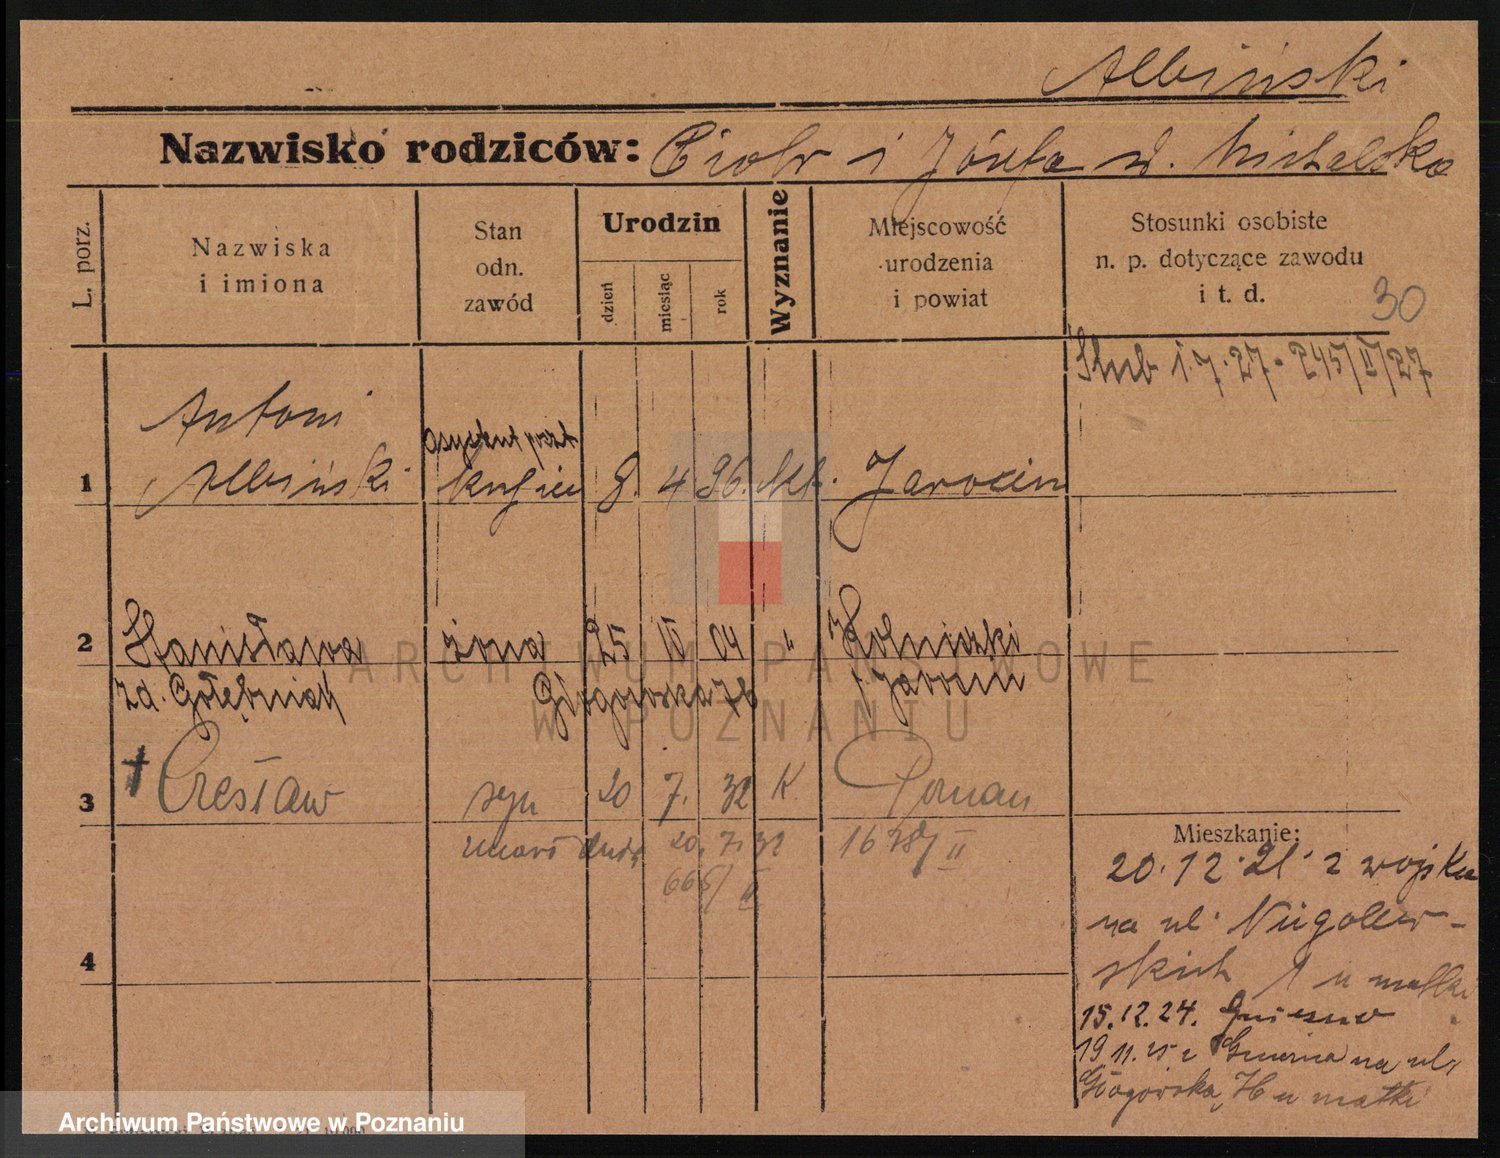 Albiński
Nazwisko rodziców: Piotr i Józefa zd. Michalska
L. porz.
Nazwiska i imiona
Stan odn. zawód
Urodzin
dzień
miesiąc
rok
Wyznanie
Miejscowość urodzenia i powiat
Stosunki osobiste n. p. dotyczące zawodu i t. d.
30
Ślub 1.7.27 - 245/II/27
Antoni
asystent poczt
1 Albiński kupiec 8. 4 96. kt. Jarocin
2 Stanisława żona 25 IV 04 "
zd. Gołębniak Głogowska 76 Jarocin
3 † Czesław syn 20 7. 32 K Poznań
zmarł dnia 20.7.32 1678/II
665/II
4
Mieszkanie:
20.12.21. z wojska
na ul. Niegolew-
skich 1 u matki
15.12.24. Gniezno
19.11.25 z Gniezna na ul.
Głogowska 76 u matki
ARCHIWUM PAŃSTWOWE
W POZNANIU
Archiwum Państwowe w Poznaniu